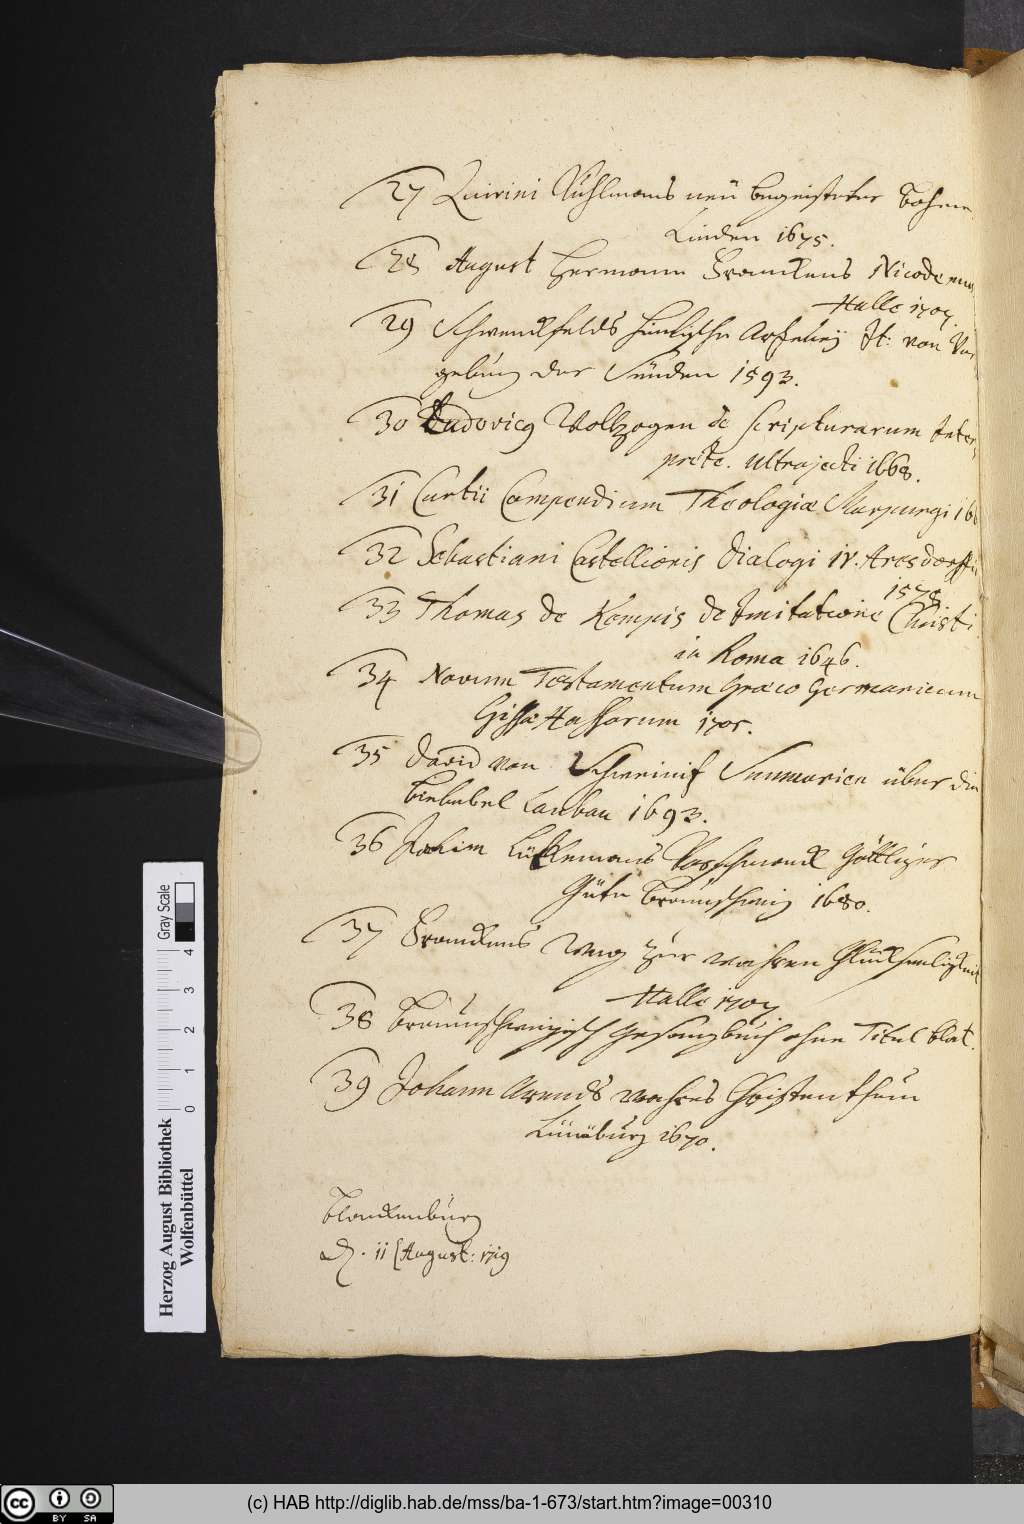 27 Quirini Kuhlmans neu begeisterter Böhme
Leiden 1675.
28 August Hermann Franckens Nicodemus
Halle 1707.
29 Schwenckfelds himlische Artzeney It: von Ver
gebung der Sünden 1593.
30 Ludovicg Wolzogen de scripturarum Inter
prete. Ultrajecti 1668.
31 Curtii Compendium Theologiæ Marpurgi 166
32 Sebastiani Castellionis Dialogi IV. Aresdorffii
1578
33 Thomas de Kempis de Imitatione Christi
in Roma 1646.
34 Novum Testamentum Græco Germanicum
Gissæ Hassorum 1705.
35 David von Schweinitz Summarien über die
Biebel Lauban 1693.
36 Joachim Lütkemans Vorschmack Göttlicher
Güte Braunschweig 1680.
37 Franckens Weg zur wahren Glückseeligkeit
Halle 1707
38 Braunschweigisch Gesangbuch ohne Titul blat.
39 Johann Arends wahres Christenthum
Lüneburg 1670.
Blanckenburg
d. 11 August: 1719
Gray Scale
0 1 2 3 4
Herzog August Bibliothek
Wolfenbüttel
cc BY SA
(c) HAB http://diglib.hab.de/mss/ba-1-673/start.htm?image=00310